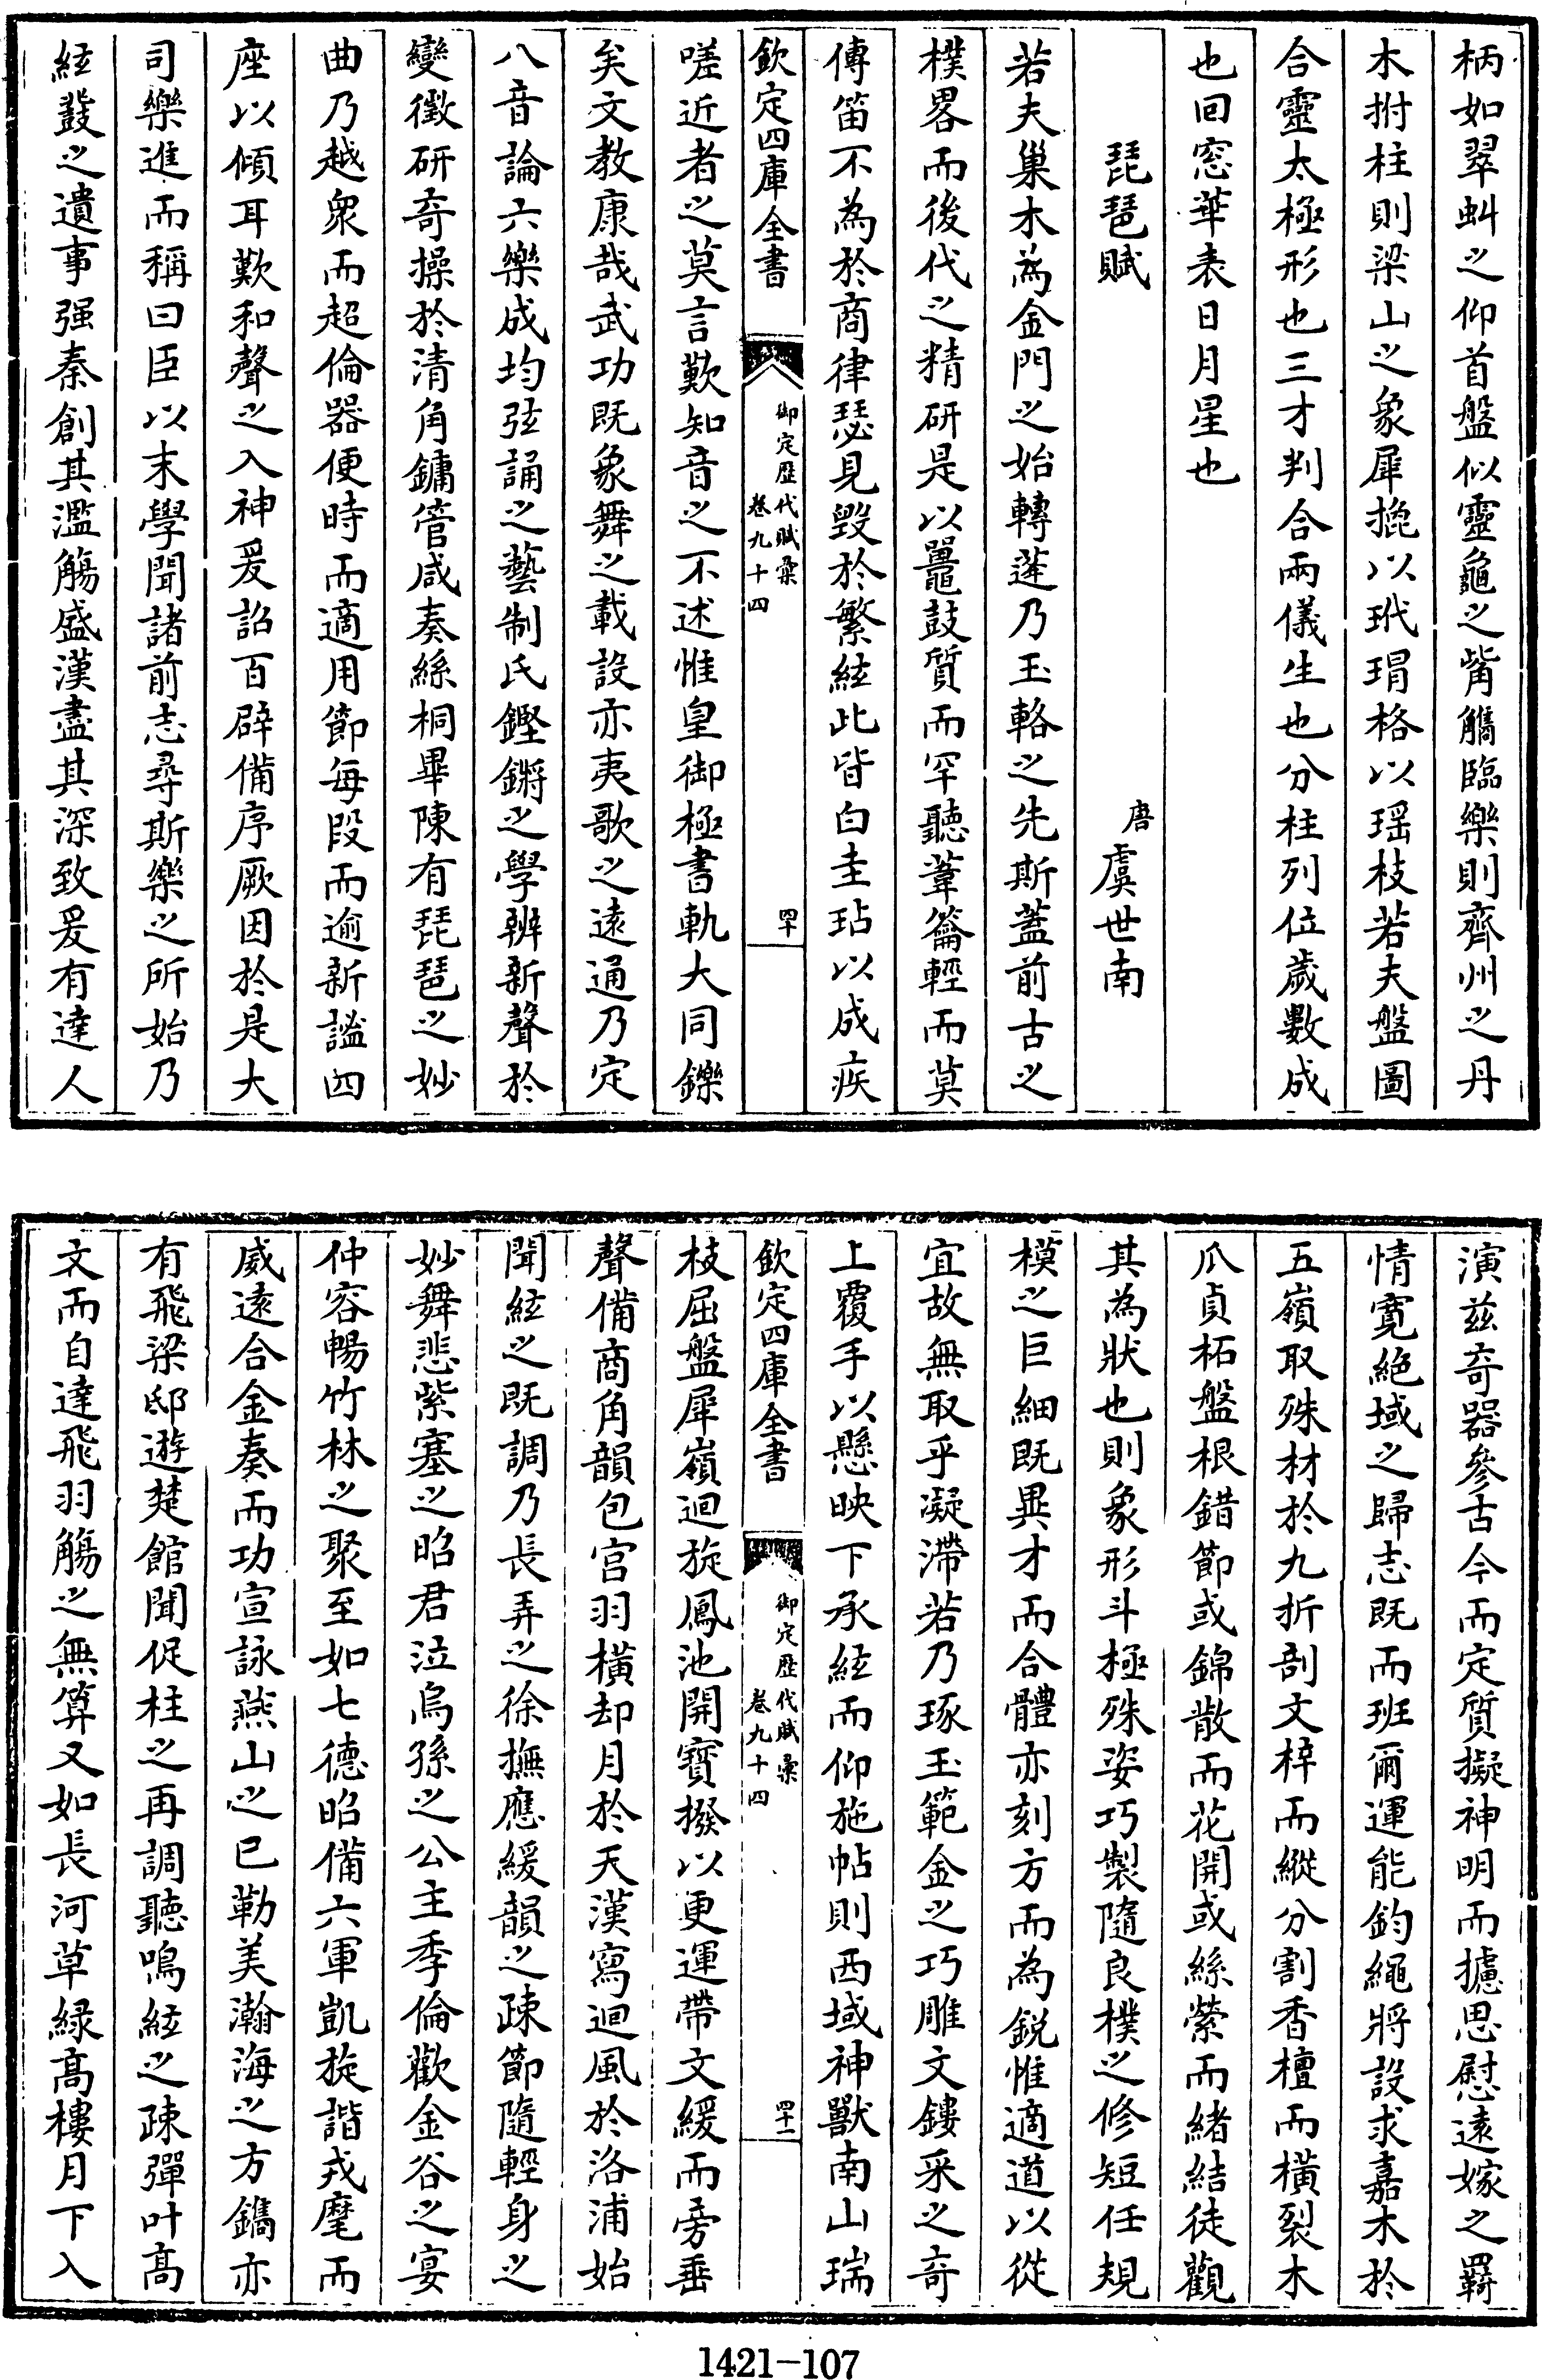 柄如翠虯之仰首盤似靈龜之觜觿臨樂則齊州之丹
木拊柱則梁山之象犀掍以玳瑁格以瑶枝若夫盤圖
合靈太極形也三才判合兩儀生也分柱列位歲數成
也回窓華表日月星也
琵琶賦
唐
虞世南
若夫巢木為金門之始轉蓬乃玉輅之先斯蓋前古之
樸畧而後代之精研是以鼉鼓質而罕聽葦籥輕而莫
傳笛不為於商律瑟見毀於繁絃此皆白圭玷以成疾
欽定四庫全書
御定歴代賦彚
卷九十四
四十
嗟近者之莫言歎知音之不述惟皇御極書軌大同鑠
矣文教康哉武功既象舞之載設亦夷歌之遠通乃定
八音論六樂成均弦誦之藝制氏鏗鏘之學辨新聲於
變徵研奇操於清角鏞管咸奏絲桐畢陳有琵琶之妙
曲乃越衆而超倫器便時而適用節每段而逾新謐四
座以傾耳歎和聲之入神爰詔百辟備序厥因於是大
司樂進而稱曰臣以末學聞諸前志尋斯樂之所始乃
絃鼗之遺事强秦創其濫觴盛漢盡其深致爰有達人
演兹奇器參古今而定質擬神明而攄思慰逺嫁之羈
情寛絶域之歸志既而班爾運能鈞繩將設求嘉木於
五嶺取殊材於九折剖文梓而縱分割香檀而横裂木
瓜貞柘盤根錯節或錦散而花開或絲縈而緒結徒觀
其為狀也則象形斗極殊姿巧製隨良樸之修短任規
模之巨細既異才而合體亦刻方而為銳惟適道以從
宜故無取乎凝滯若乃琢玉範金之巧雕文鏤采之奇
上覆手以懸映下承絃而仰施帖則西域神獸南山瑞
欽定四庫全書
御定歴代賦彚
卷九十四
四十一
枝屈盤犀嶺迴旋鳳池開寳撥以更運帶文緩而旁垂
聲備商角韻包宫羽横却月於天漢寫迴風於洛浦始
聞絃之既調乃長弄之徐撫應緩韻之疎節隨輕身之
妙舞悲紫塞之昭君泣烏孫之公主季倫歡金谷之宴
仲容暢竹林之聚至如七德昭備六軍凱旋諧戎麾而
威逺合金奏而功宣詠燕山之已勒美瀚海之方鐫亦
有飛梁邸遊楚館聞促柱之再調聽鳴絃之疎彈叶髙
文而自達飛羽觴之無算又如長河草緑髙樓月下入
1421-107